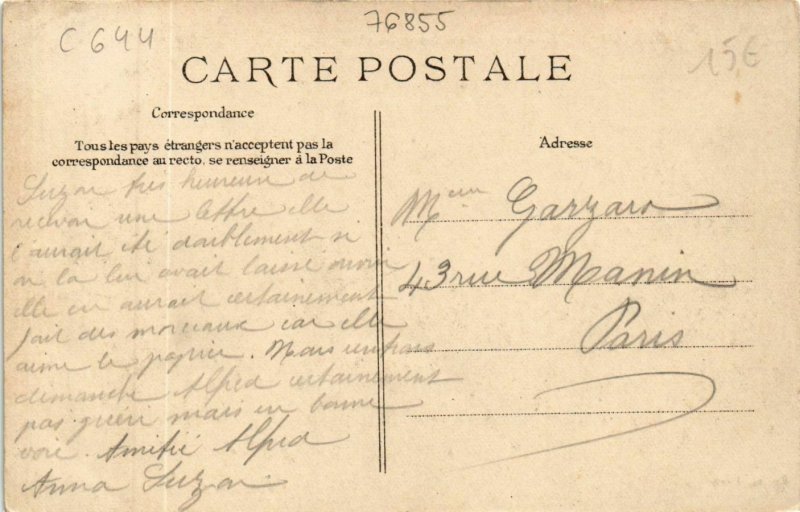 C 644
76855
15€
CARTE POSTALE
Correspondance
Tous les pays étrangers n'acceptent pas la
correspondance au recto, se renseigner à la Poste
Suzon très heureuse de
recevoir une lettre elle
l'aurait été doublement si
on la lui avait laissé ouvrir
elle en aurait certainement
fait des morceaux car elle
aime le papier. Mais
dimanche Alfred certainement
pas guéri mais en bonne
voie. Amitié Alfred
Anna Suzon
Adresse
Garzaro
43 rue Manin
Paris